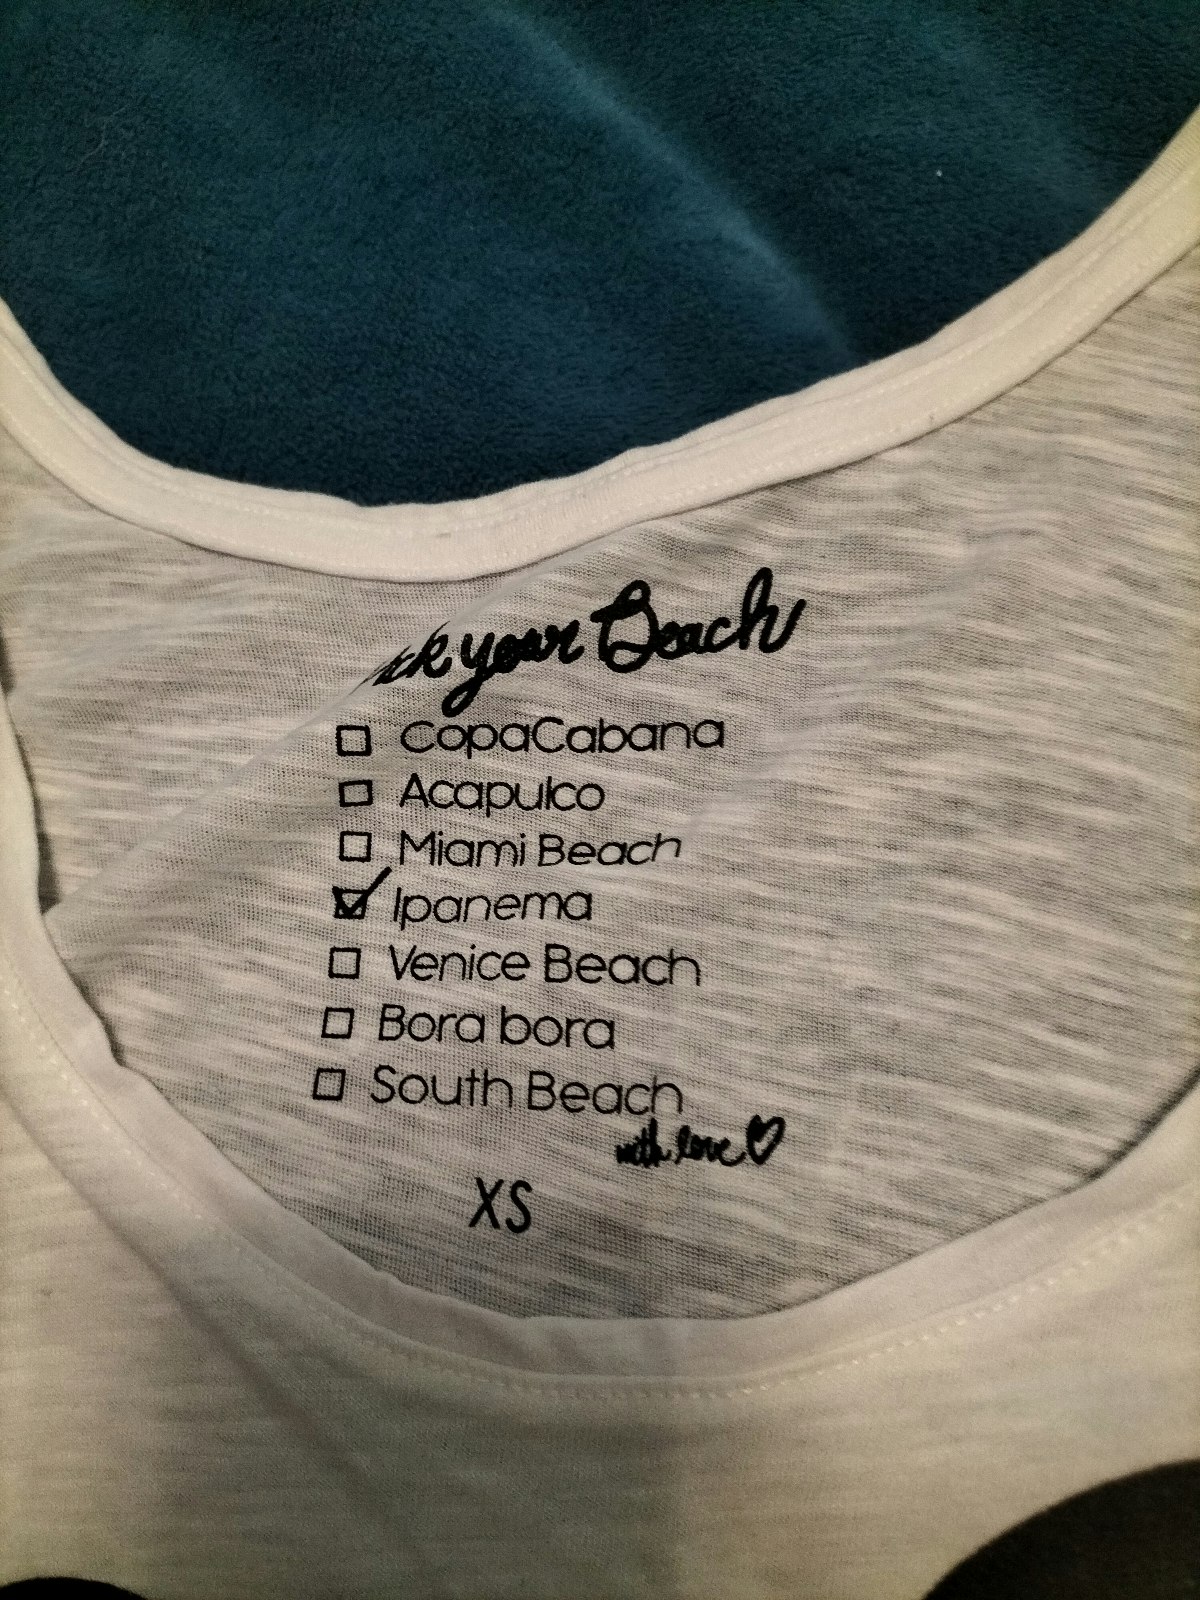 your Beach
CopaCabana
Acapulco
Miami Beach
Ipanema
Venice Beach
Bora bora
South Beach
with love
XS